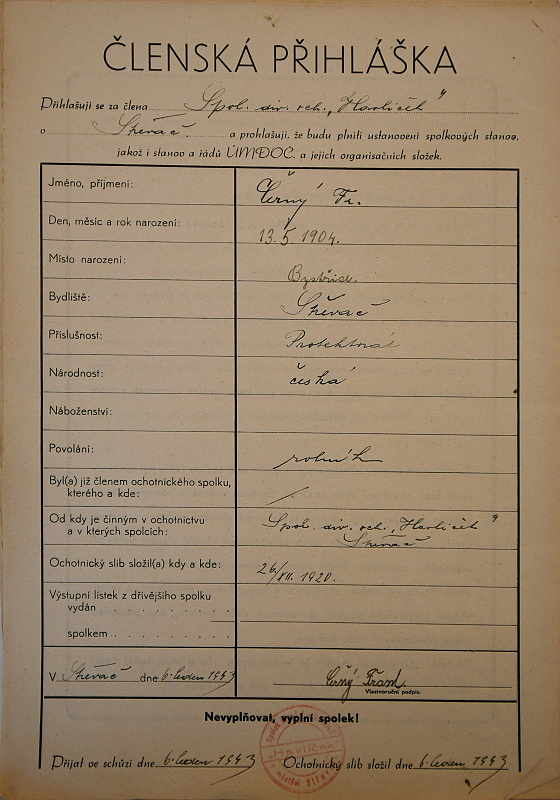 ČLENSKÁ PŘIHLÁŠKA
Přihlašuji se za člena Spol. div. och. „Havlíček"
v Skřivač a prohlašuji, že budu plniti ustanovení spolkových stanov,
jakož i stanov a řádů ÚMDOČ. a jejich organisačních složek.
Jméno, příjmení: Černý Fr.
Den, měsíc a rok narození: 13. 5. 1904.
Místo narození: Bystřice.
Bydliště:
Příslušnost: Protektorát
Národnost: česká
Náboženství:
Povolání: rolník
Byl(a) již členem ochotnického spolku,
kterého a kde:
Od kdy je činným v ochotnictvu Spol. div. och. „Havlíček"
a v kterých spolcích:
Ochotnický slib složil(a) kdy a kde: 26/XII. 1920.
Výstupní lístek z dřívějšího spolku
vydán . . . . . . . . . .
spolkem . . . . . . . . . .
V dne 6. leden 1943 Černý Frant.
Vlastnoruční podpis.
Nevyplňovat, vyplní spolek!
„Havlíček"
Přijat ve schůzi dne 6. leden 1943 Ochotnický slib složil dne 6. leden 1943